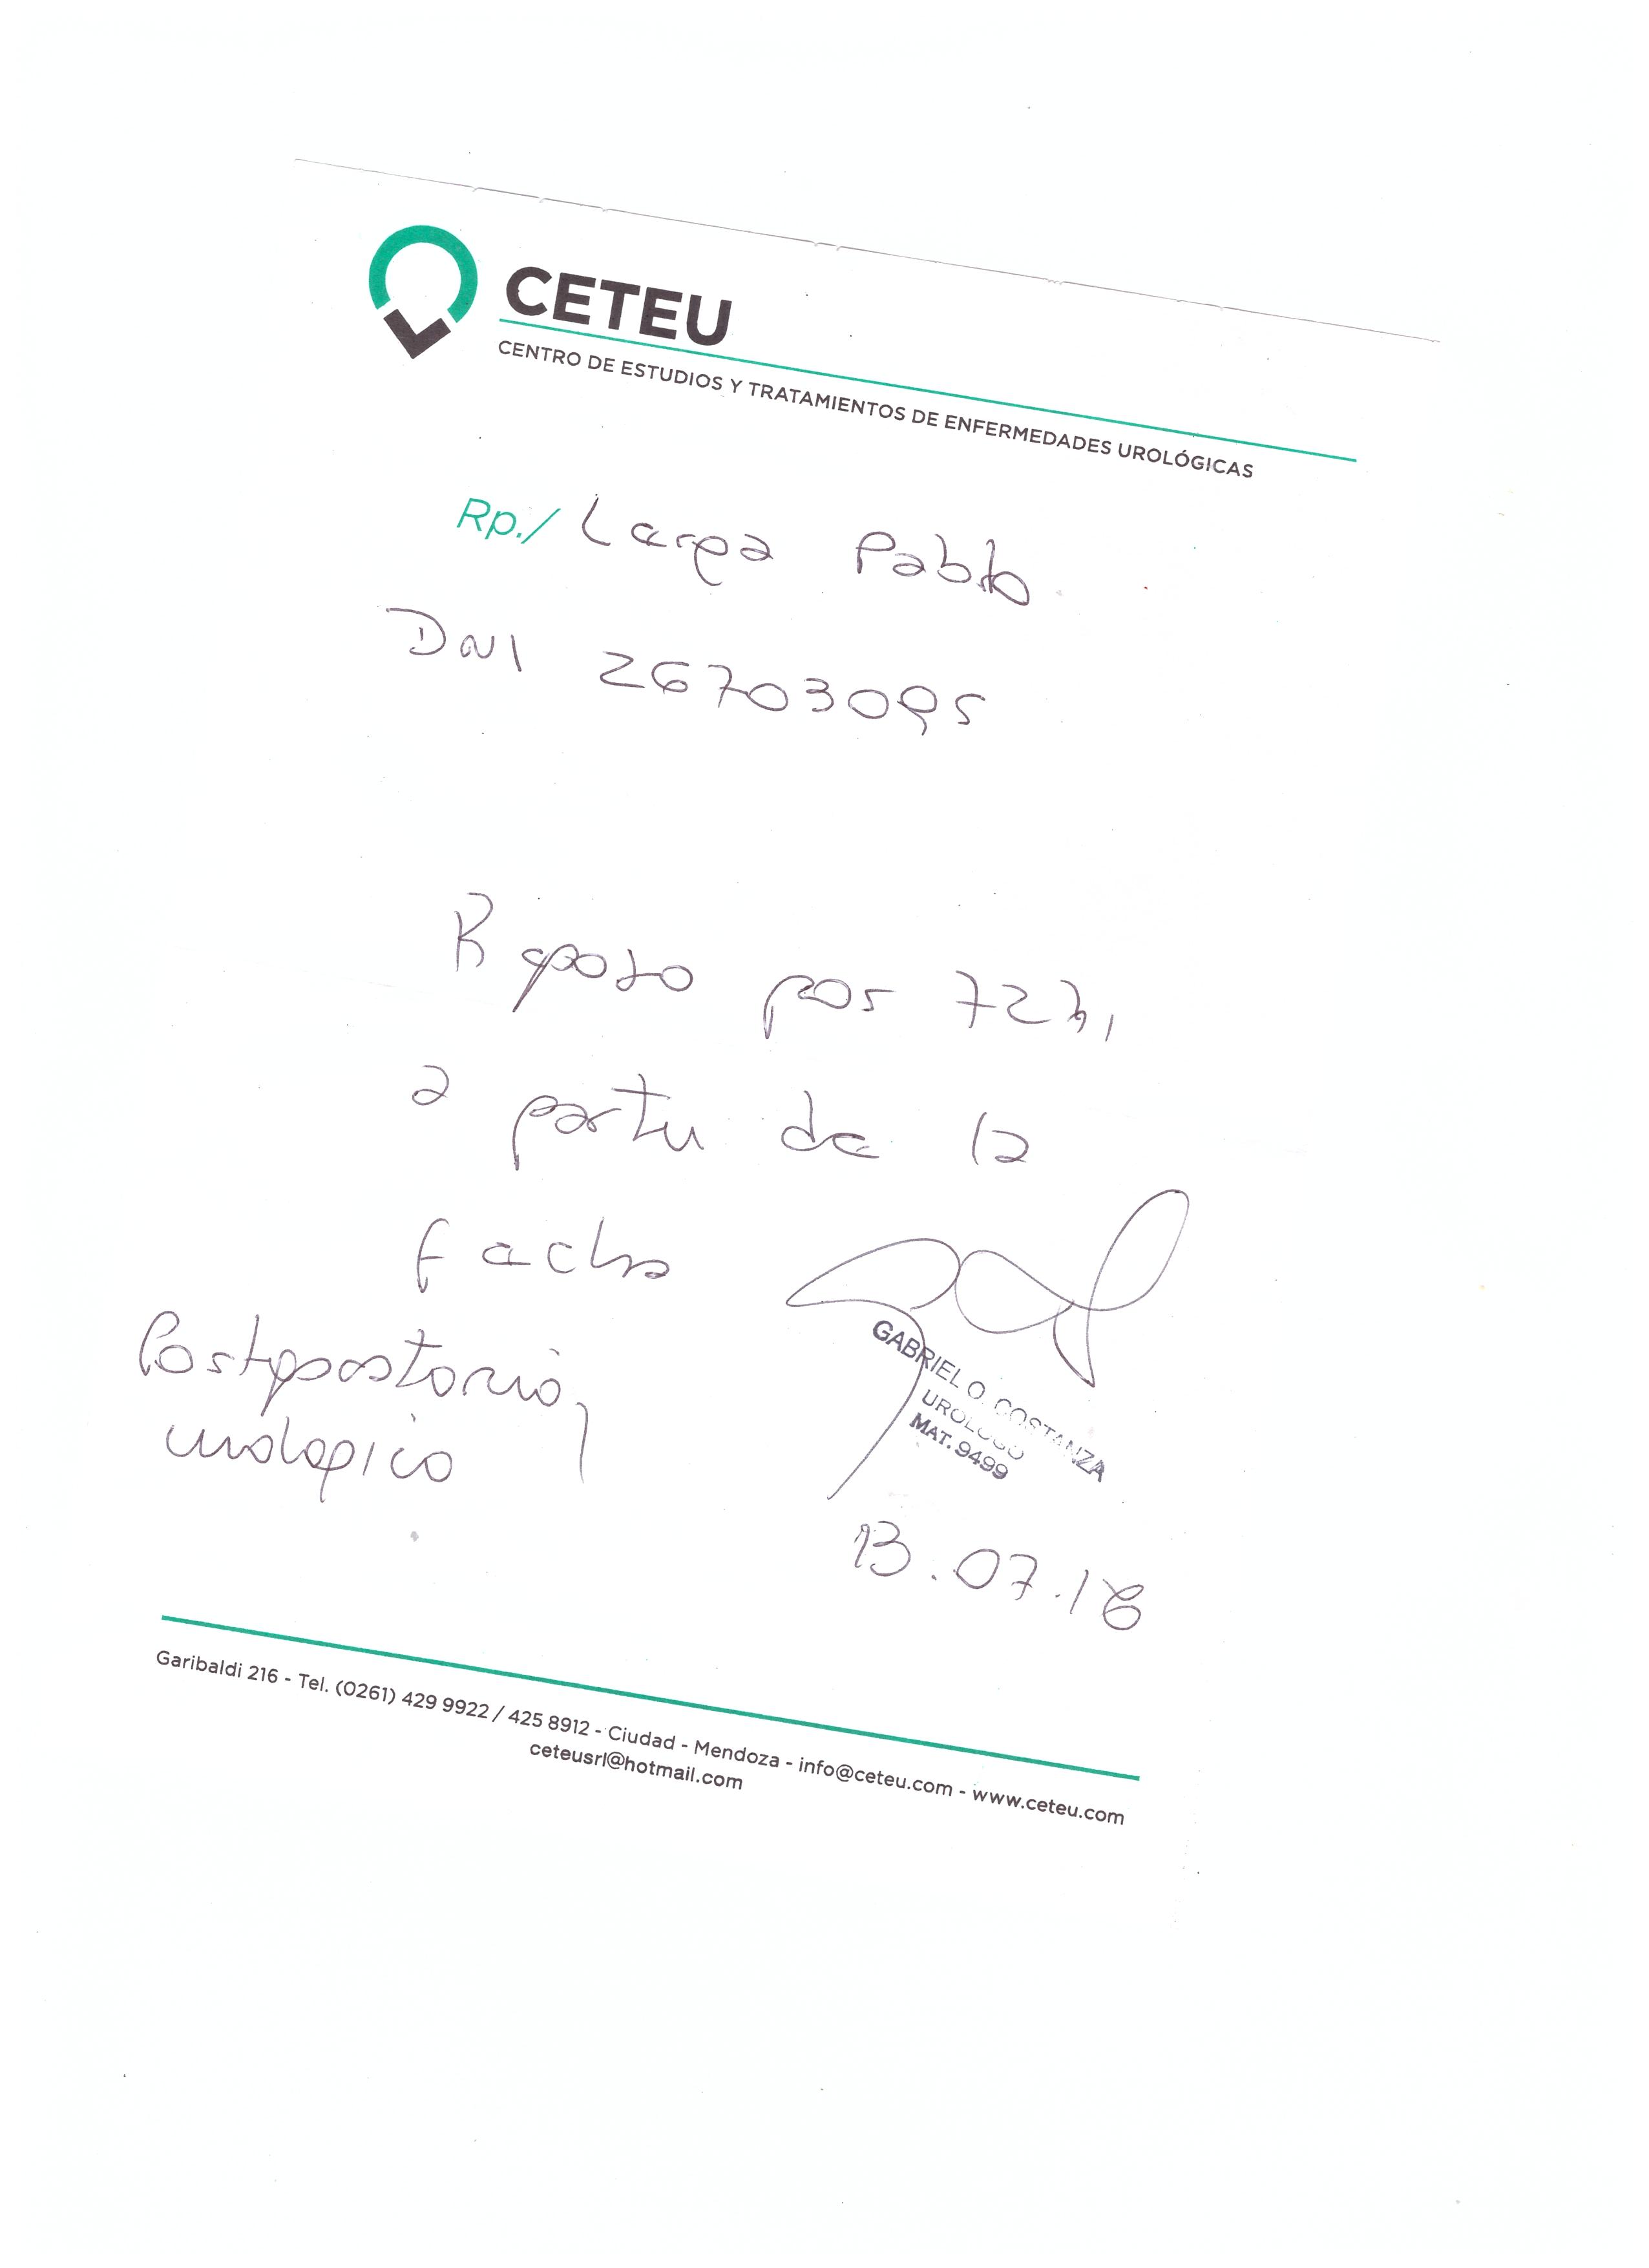 CETEU
CENTRO DE ESTUDIOS Y TRATAMIENTOS DE ENFERMEDADES UROLÓGICAS
Rp./ Larga Pablo
DNI 26703095
Reposo por 72 h,
a partir de la
fecha
Postoperatorio,
urologico
GABRIEL O. COSTANZA
UROLOGO
MAT. 9499
13.07.18
Garibaldi 216 - Tel. (0261) 429 9922 / 425 8912 - Ciudad - Mendoza - info@ceteu.com - www.ceteu.com
ceteusrl@hotmail.com